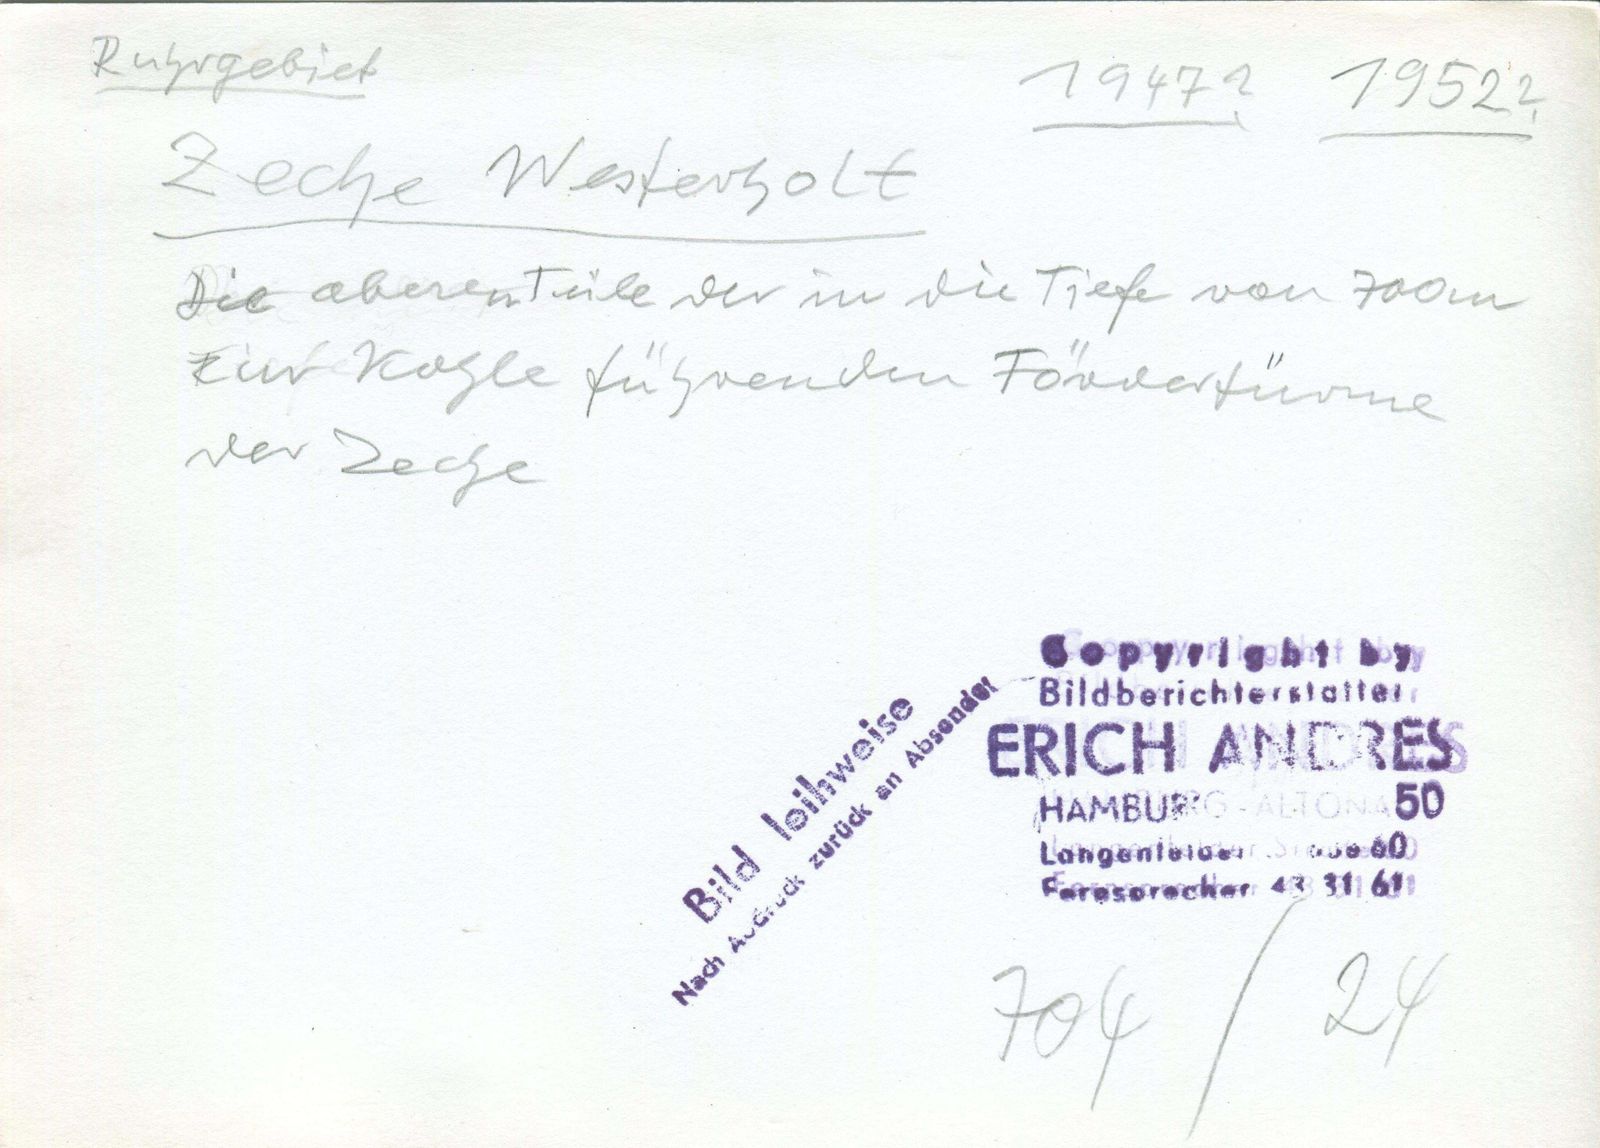 Ruhrgebiet
1947? 1952?
Zeche Westerholt
Die oberen Teile der in die Tiefe von 700m
zur Kohle führenden Fördertürme
der Zeche
Bild leihweise
Nach Abdruck zurück an Absender
Copyright by
Bildberichterstatter
ERICH ANDRES
HAMBURG - ALTONA 50
Langenfelder Straße 60
Fernsprecher 43 31 61
704 / 24